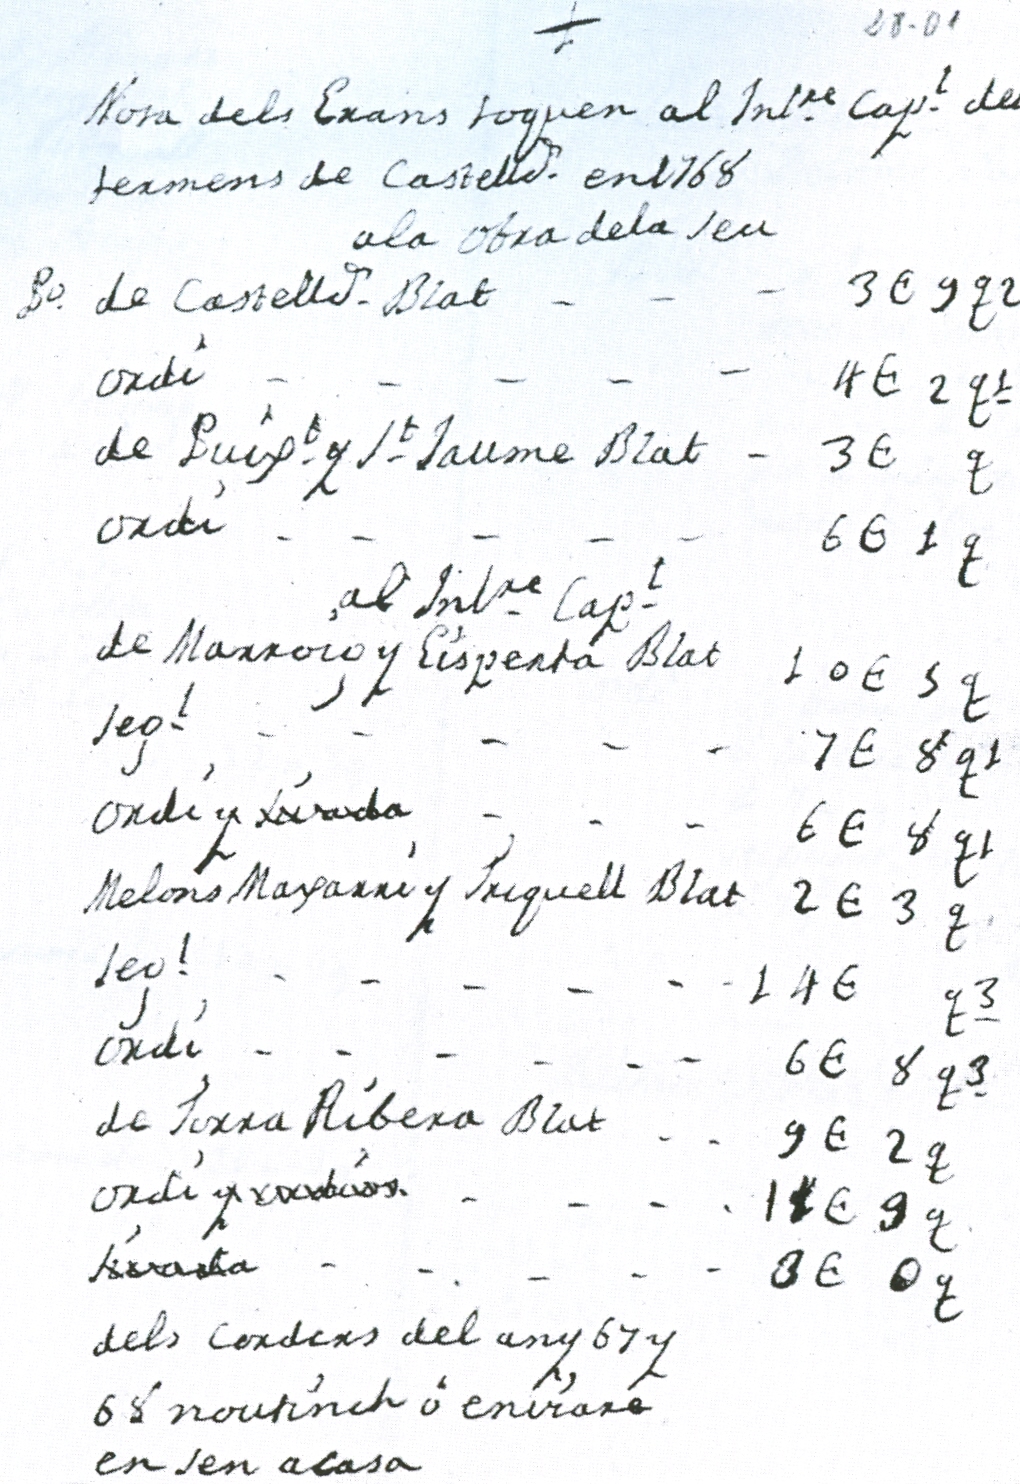 28-01
Nota dels Grans toquen al Intre Capt. dels
termens de Castelló. en 1768
a la obra de la Seu
Po. de Castelló. Blat - - - 3 E 9 q 2
ordi - - - - - 4 E 2 q 1
de Puigt. y St. Jaume Blat - 3 E q
ordi - - - - - 6 E 1 q
al Intre Capt
de y Blat 1 0 E 5 q
segl - - - - - 7 E 8 q 1
ordi y sivada - - - 6 E 8 q 1
Melons y Triquell Blat 2 E 3 q
segl - - - - - 1 4 E q 3
ordi - - - - - - 6 E 8 q 3
de Torra Ribera Blat - - 9 E 2 q
ordi y - - - - 11 E 9 q
sivada - - - - - 3 E 0 q
dels Corders del any 67 y
68 nou tinch ó enviaré
en sen a casa